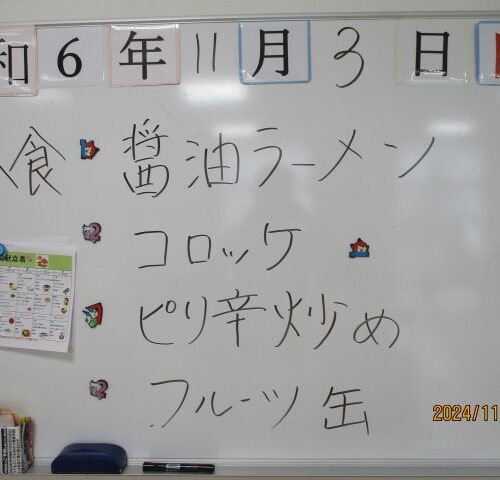 和6年11月3日
食 醤油ラーメン
コロッケ
ピリ辛炒め
フルーツ缶
献立表
2024/11